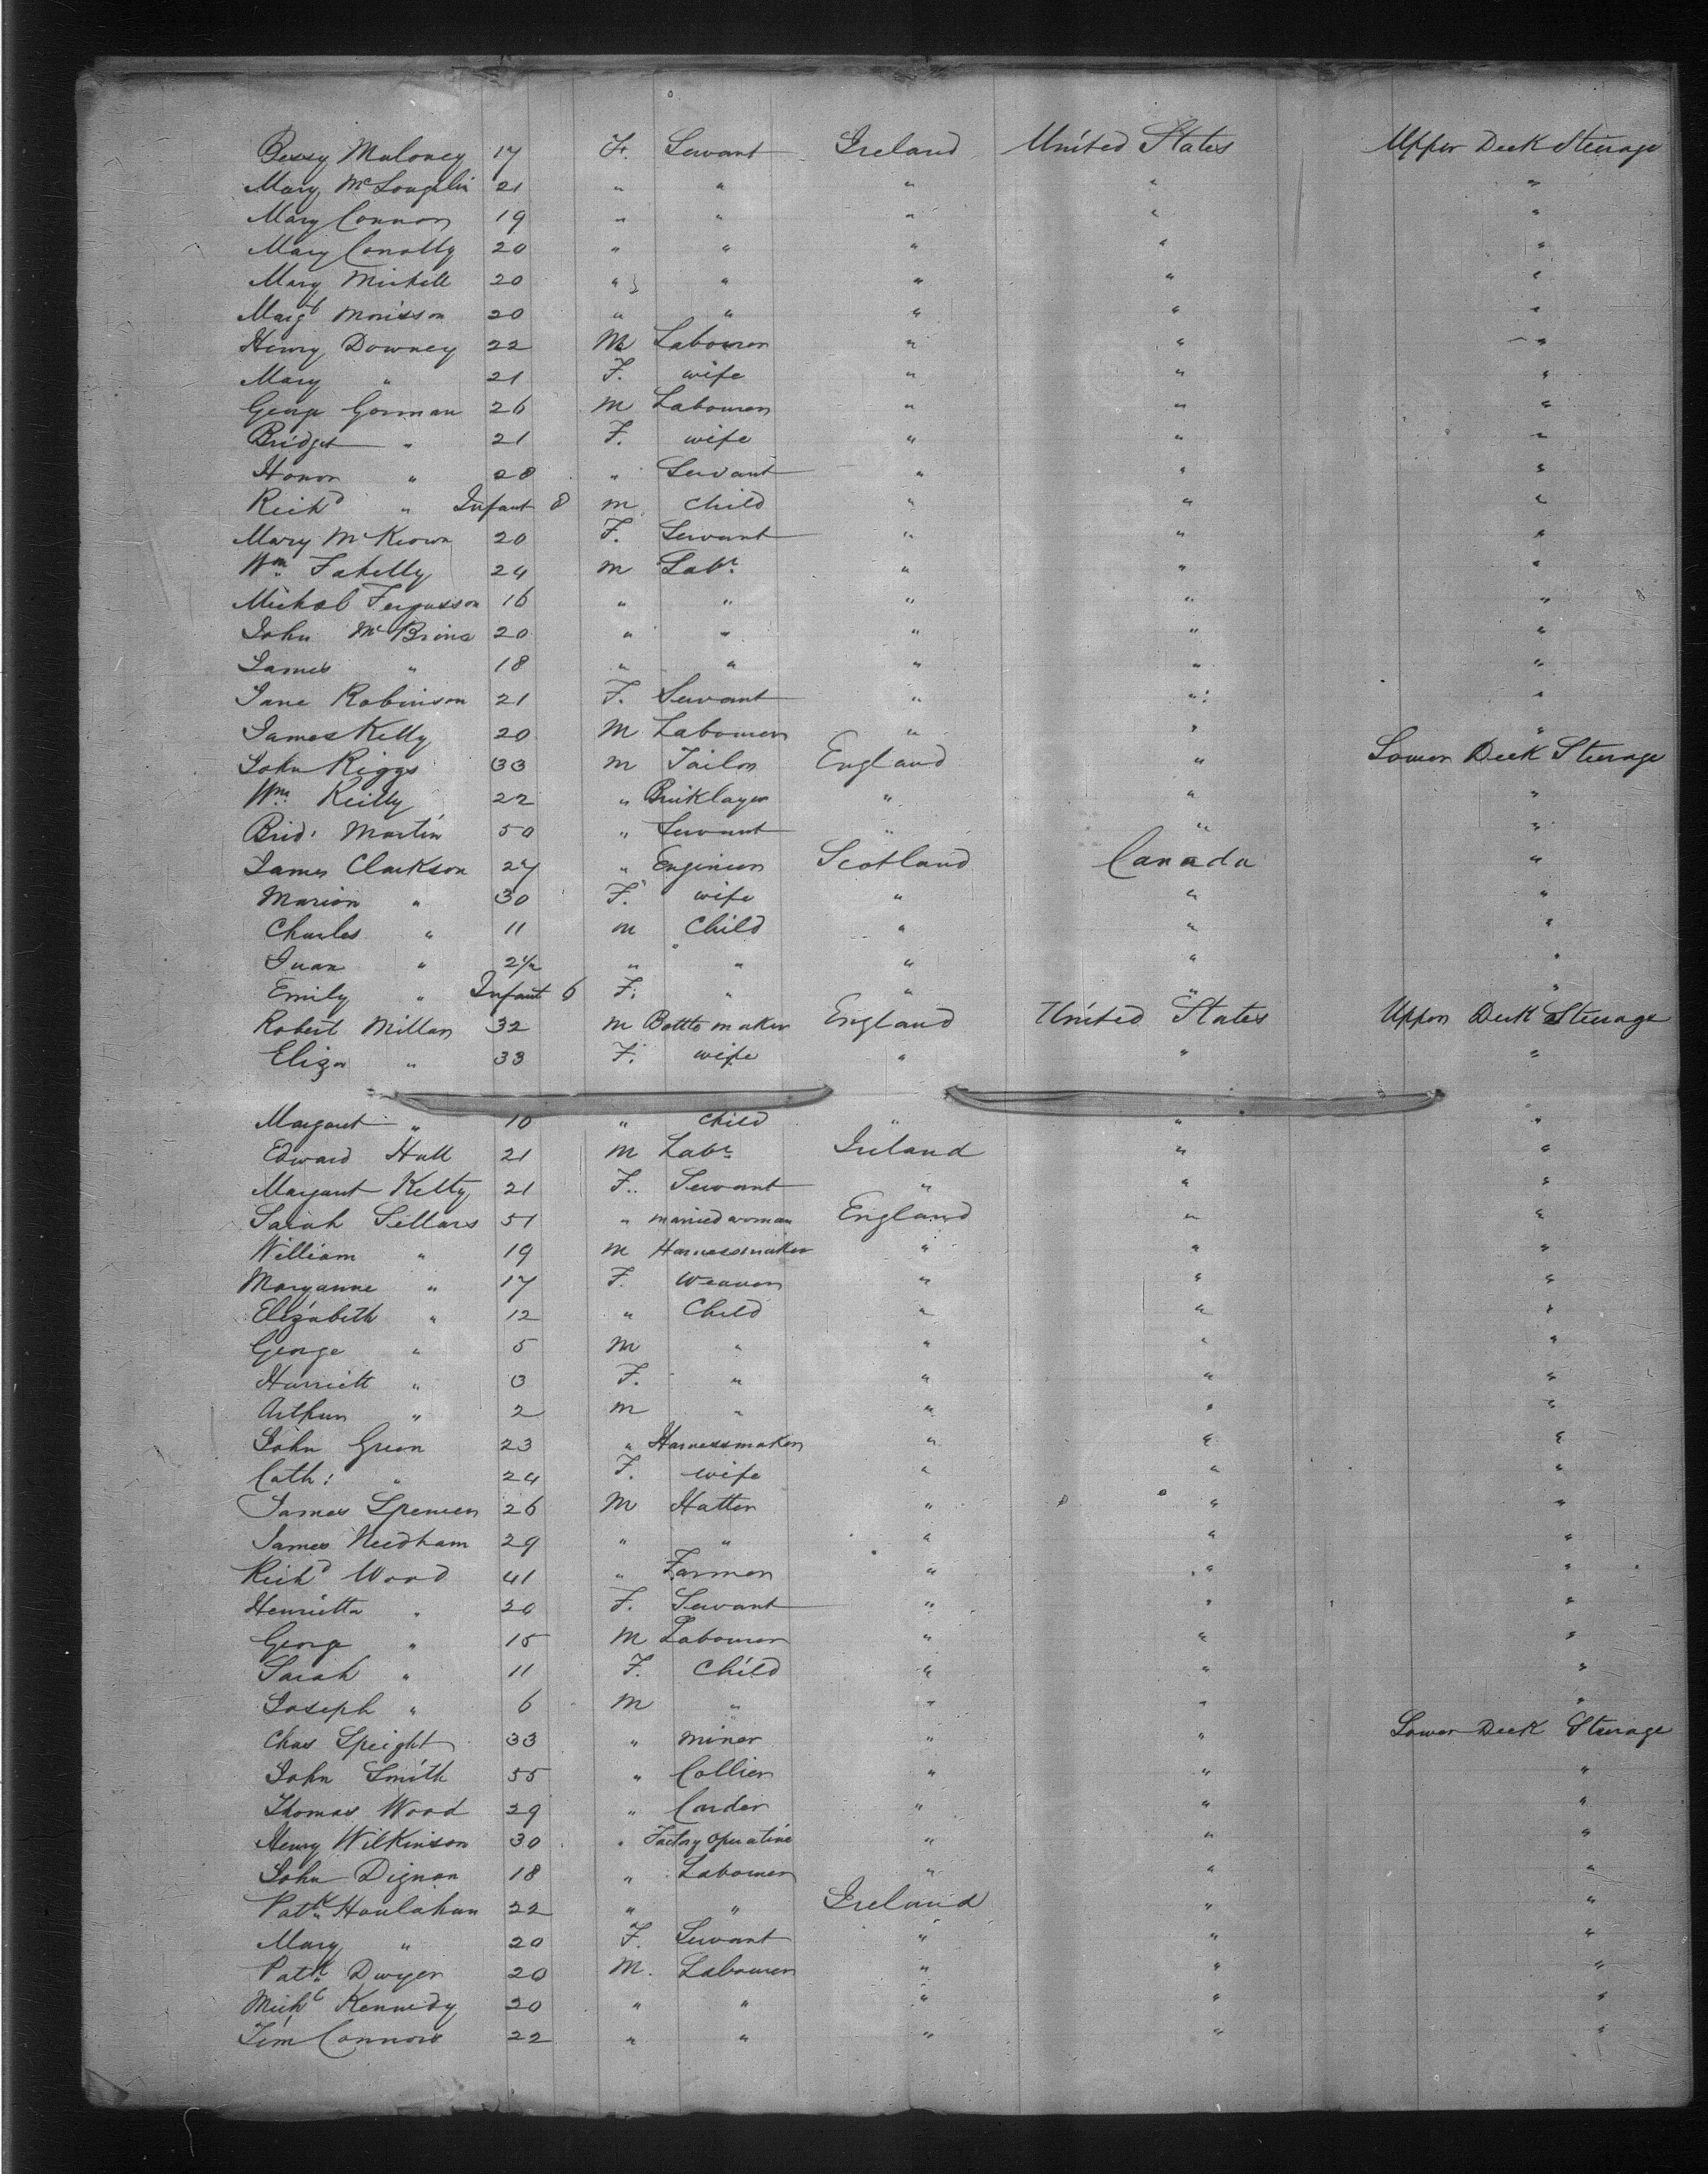 Bessy Maloney 17 F. Servant Ireland United States Upper Deck Steerage
Mary McLoughlin 21 " " " " "
Mary Connors 19 " " " " "
Mary Conolly 20 " " " " "
Mary Michell 20 " " " " "
Margt Morisson 20 " " " " "
Henry Downey 22 M Labourer " " "
Mary " 21 F. wife " " "
George Gorman 26 M Labourer " " "
Bridget " 21 F. wife " " "
Honor " 20 " Servant " " "
Richd " Infant 8 m child " " "
Mary McKeown 20 F. Servant " " "
Wm Fahelly 24 m Labr " " "
Michal Fergusson 16 " " " " "
John McBrine 20 " " " " "
James " 18 " " " " "
Jane Robinson 21 F. Servant " " "
James Kelly 20 M Labourer " " "
John Riggs 33 m Tailor England " Lower Deck Steerage
Wm Reilly 22 " Bricklayer " " "
Brid: Martin 50 " Servant " " "
James Clarkson 27 " Engineer Scotland Canada "
Marion " 30 F. wife " " "
Charles " 11 m Child " " "
" 2½ " " " " "
Emily " Infant 6 F. " " " "
Robert Millar 32 m Bottle maker England United States Upper Deck Steerage
Eliza " 33 F. wife " " "
Margaret " 10 " child " " "
Edward Hall 21 M Labr Ireland " "
Margaret Kelty 21 F. Servant " " "
Sarah Sellars 51 " married woman England " "
William " 19 M Harnessmaker " " "
Maryanne " 17 F. Weaver " " "
Elizabeth " 12 " Child " " "
George " 5 M " " " "
Harriett " 3 F. " " " "
Arthur " 2 m " " " "
John Green 23 " Harnessmaker " " "
Cath: " 24 F. wife " " "
James Spencer 26 M Hatter " " "
James Needham 29 " " " " "
Richd Wood 41 " Farmer " " "
Henrietta " 20 F. Servant " " "
George " 15 M Labourer " " "
Sarah " 11 F. Child " " "
Joseph " 6 M " " " "
Chas Speight 33 " miner " " Lower Deck Steerage
John Smith 55 " Collier " " "
Thomas Wood 29 " Carder " " "
Henry Wilkinson 30 " Factory Operative " " "
John Dignan 18 " Labourer " " "
Patk Houlahan 22 " " Ireland " "
Mary " 20 F. Servant " " "
Patk Dwyer 20 M. Labourer " " "
Michl Kennedy 20 " " " " "
Tim Connors 22 " " " " "